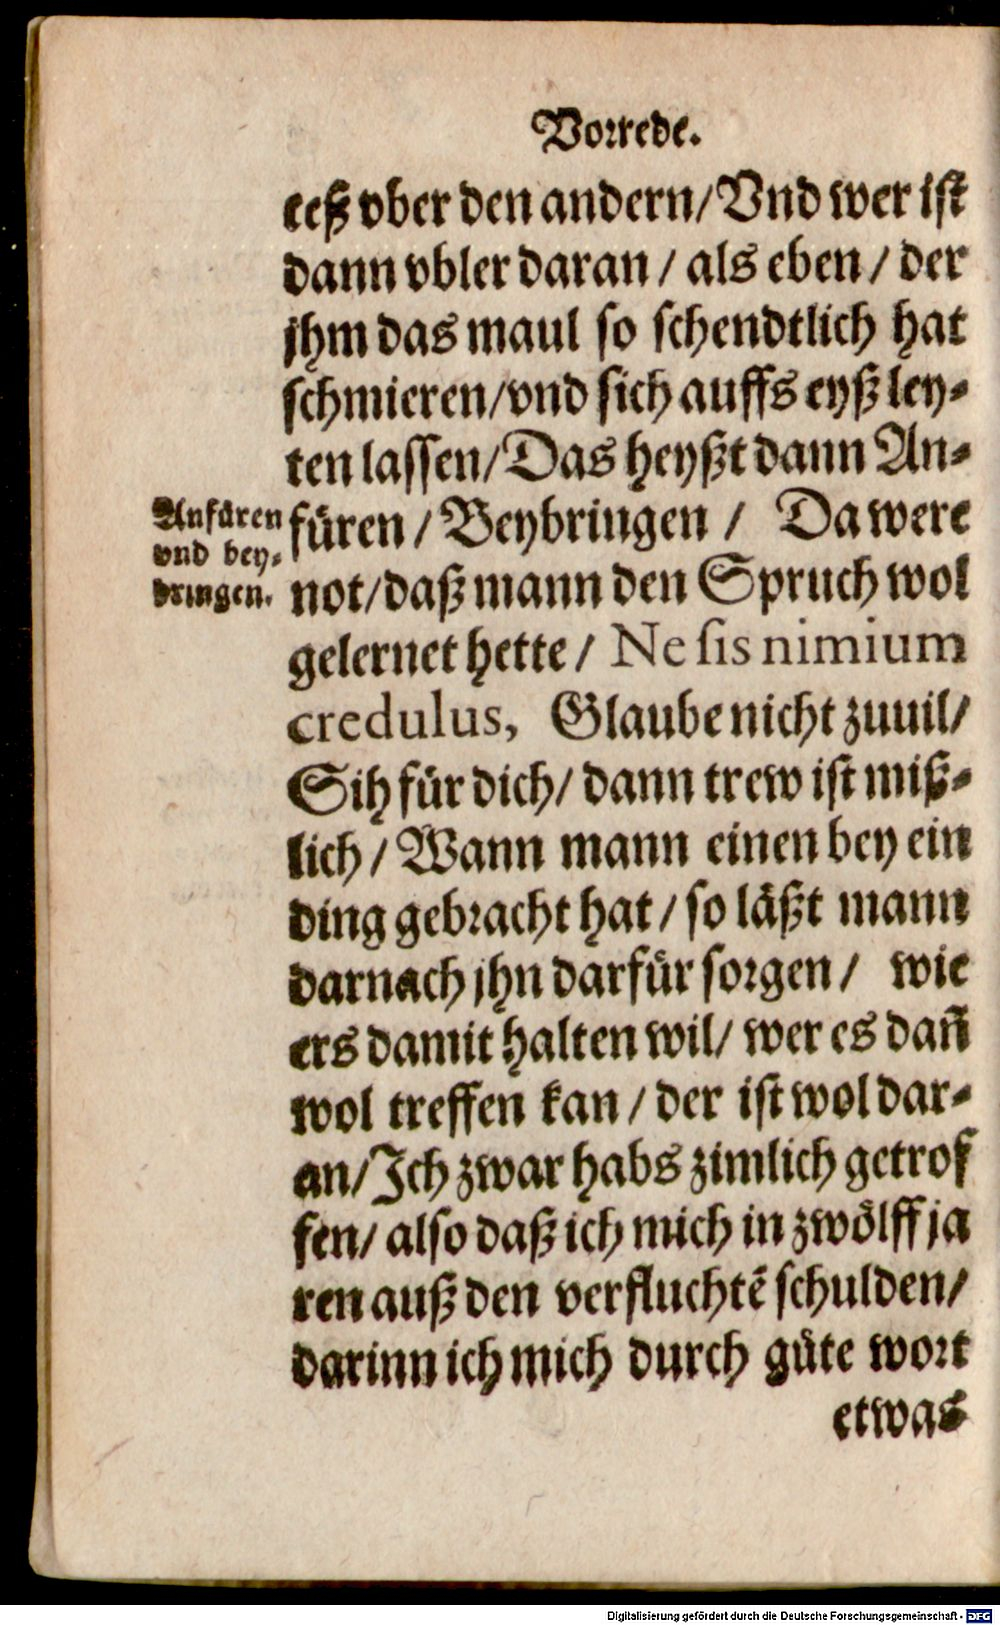 Vorrede.
ceß vber den andern/ Vnd wer ist
dann vbler daran / als eben / der
jhm das maul so schendtlich hat
schmieren/ vnd sich auffs eyß ley-
ten lassen/ Das heyßt dann An-
Anfüren
vnd bey-
bringen.
füren / Beybringen / Da were
not/ daß mann den Spruch wol
gelernet hette / Ne sis nimium
credulus, Glaube nicht zuuil/
Sih für dich/ dann trew ist miß-
lich / Wann mann einen bey ein
ding gebracht hat / so läßt mann
darnach jhn darfür sorgen / wie
ers damit halten wil/ wer es dañ
wol treffen kan / der ist wol dar-
an/ Ich zwar habs zimlich getrof
fen/ also daß ich mich in zwölff ja
ren auß den verfluchtẽ schulden/
darinn ich mich durch güte wort
etwas
Digitalisierung gefördert durch die Deutsche Forschungsgemeinschaft - DFG